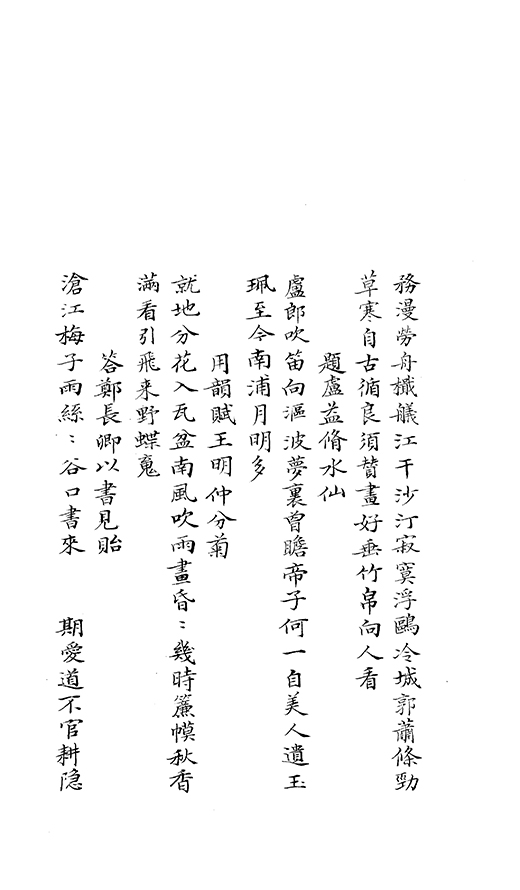 務漫勞舟檥艤江干沙汀寂寞浮鷗冷城郭蕭條勁
草寒自古循良須贊畫好垂竹帛向人看
題盧益脩水仙
盧郎吹笛向漚波夢裏曾瞻帝子何一自美人遺玉
珮至今南浦月明多
用韻賦王明仲分菊
就地分花入瓦盆南風吹雨晝昏〻幾時簾幙秋香
滿看引飛来野蝶䰟
答鄭長卿以書見貽
滄江梅子雨絲〻谷口書來 期愛道不官耕隐